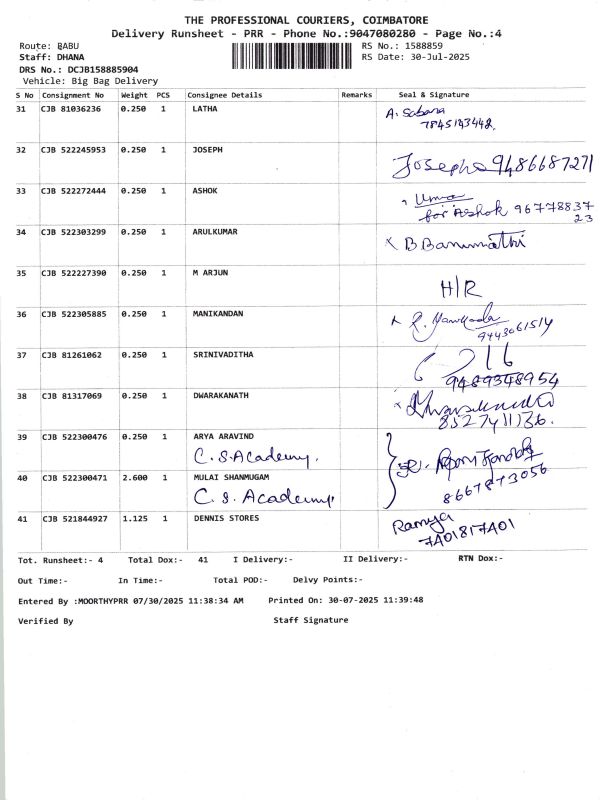 THE PROFESSIONAL COURIERS, COIMBATORE
Delivery Runsheet - PRR - Phone No.:9047080280 - Page No.:4
Route: BABU
RS No.: 1588859
Staff: DHANA
RS Date: 30-Jul-2025
DRS No.: DCJB158885904
Vehicle: Big Bag Delivery
S No Consignment No Weight PCS Consignee Details Remarks Seal & Signature
31 CJB 81036236 0.250 1 LATHA A. Sabana
7845143442.
32 CJB 522245953 0.250 1 JOSEPH Josephs 9486687271
33 CJB 522272444 0.250 1 ASHOK Uma
for Ashok 96778837
23
34 CJB 522303299 0.250 1 ARULKUMAR x B Banumathi
35 CJB 522227390 0.250 1 M ARJUN H/R
36 CJB 522305885 0.250 1 MANIKANDAN x R.
9443061514
37 CJB 81261062 0.250 1 SRINIVADITHA
9489348954
38 CJB 81317069 0.250 1 DWARAKANATH x
8527411136.
39 CJB 522300476 0.250 1 ARYA ARAVIND
C.S.Academy.
40 CJB 522300471 2.600 1 MULAI SHANMUGAM 8667873056
C.S. Academy
41 CJB 521844927 1.125 1 DENNIS STORES Ramya
7401817401
Tot. Runsheet:- 4 Total Dox:- 41 I Delivery:- II Delivery:- RTN Dox:-
Out Time:- In Time:- Total POD:- Delvy Points:-
Entered By :MOORTHYPRR 07/30/2025 11:38:34 AM Printed On: 30-07-2025 11:39:48
Verified By Staff Signature